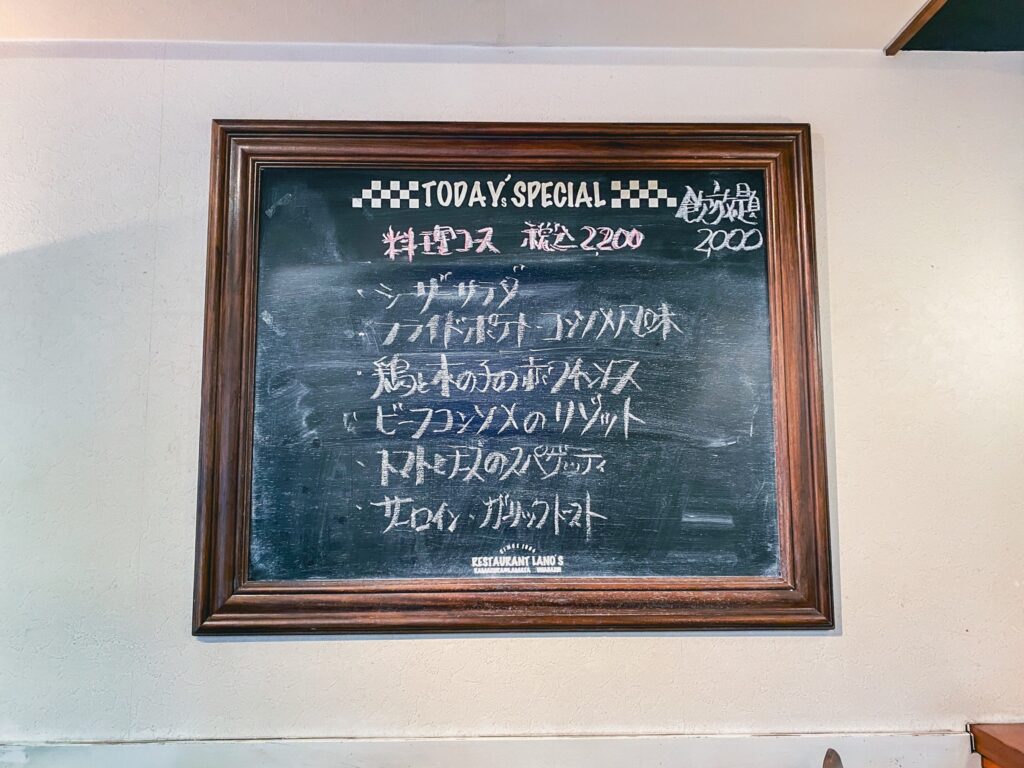 TODAY'S SPECIAL
飲み放題
2000
料理コース 税込2,200
・シーザーサラダ
・フライドポテト・コンソメ風味
・鶏と木の子のホワイトソース
・ビーフコンソメのリゾット
・トマトとチーズのスパゲッティ
・サーロイン・ガーリックトースト
RESTAURANT LANO'S